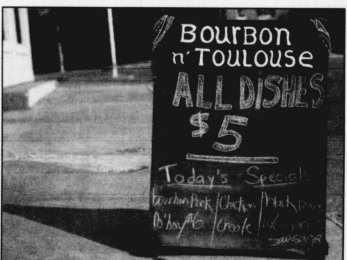 BOURBON
n' TOULOUSE
ALL DISHES
$5
Today's Specials
Bourbon Pork / Chicken /
Creole
Sausage